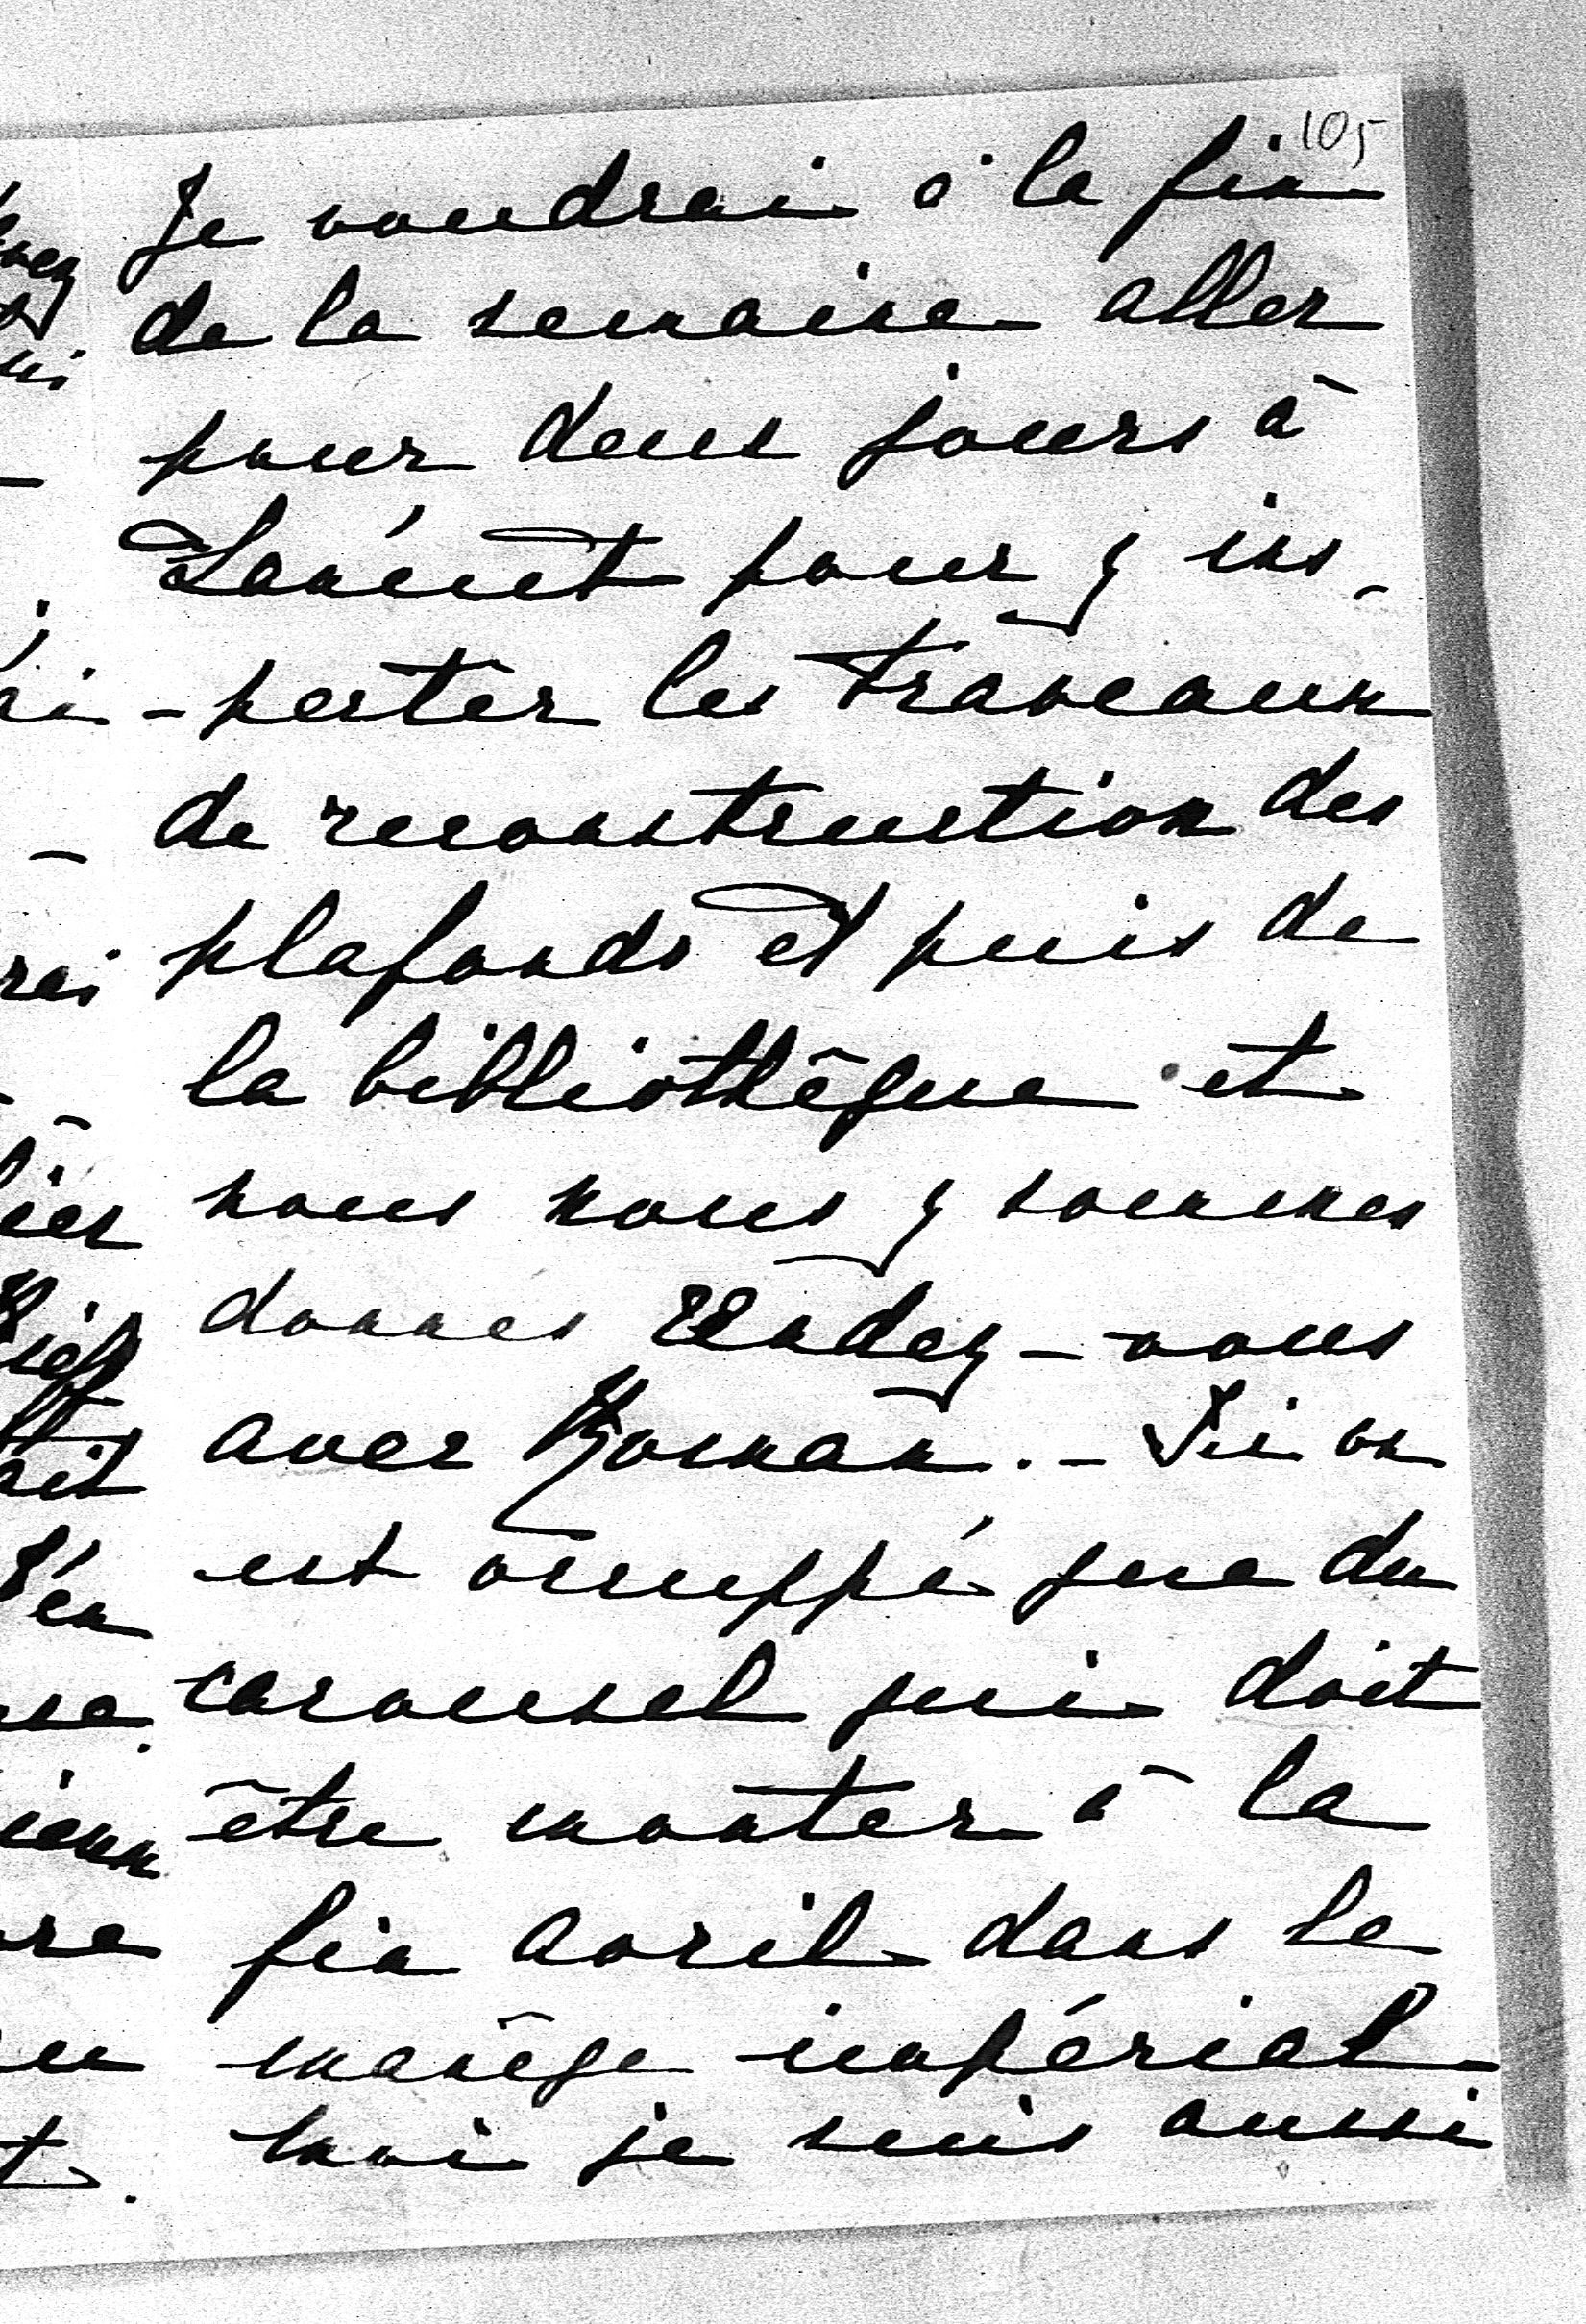 105
Je voudrai à la fin
de la semaine aller
pour deux jours à
Lancut pour y ins-
-pecter les traveaux
de reconstruction des
plafonds et puis de
la bibliothêque et
nous nous y sommes
donnes rendez-vous
avec Roman. - Ici on
est occuppé que du
carousel qui doit
être monter à la
fin avril dans le
manêge impérial
moi je suis aussi